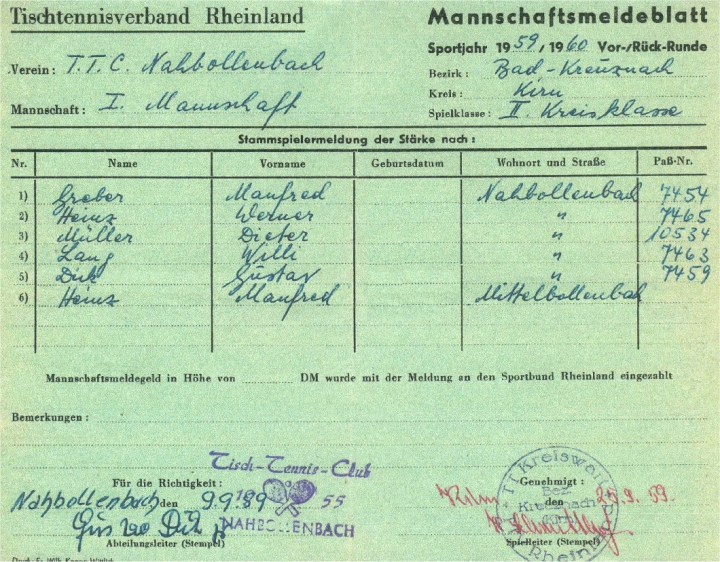 Tischtennisverband Rheinland
Mannschaftsmeldeblatt
Sportjahr 1959/1960 Vor-/Rück-Runde
Verein: T.T.C. Nahbollenbach
Bezirk: Bad-Kreuznach
Kreis: Kirn
Mannschaft: I. Mannschaft
Spielklasse: II. Kreisklasse
Stammspielermeldung der Stärke nach:
Nr. Name Vorname Geburtsdatum Wohnort und Straße Paß-Nr.
1) Greber Manfred Nahbollenbach 7454
2) Heinz Werner " 7465
3) Müller Dieter " 10534
4) Lang Willi " 7463
5) Dick Gustav " 7459
6) Heinz Manfred Mittelbollenbach
Mannschaftsmeldegeld in Höhe von DM wurde mit der Meldung an den Sportbund Rheinland eingezahlt
Bemerkungen:
Tisch-Tennis-Club
19 55
NAHBOLLENBACH
Für die Richtigkeit:
Nahbollenbach den 9.9.59
Gustav Dick
Abteilungsleiter (Stempel)
TT Kreiswart
Bez.
Kreuznach
Rheinland
Genehmigt:
den 25.9.59.
Spielleiter (Stempel)